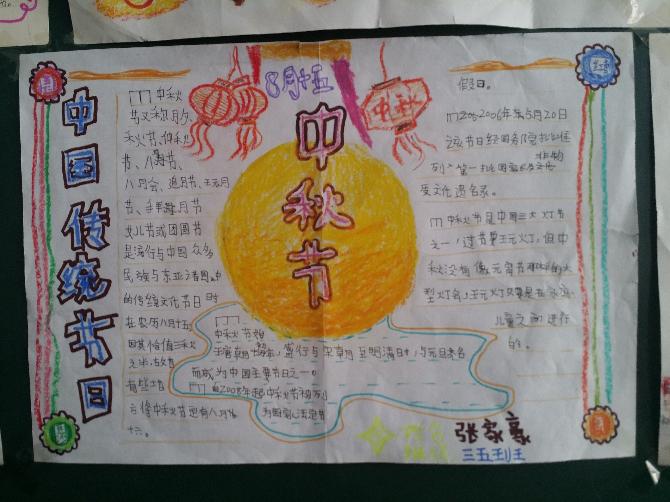 中国传统节日
8月十五
中秋节
中秋
中秋
节又称月夕、
秋节、仲秋
节、八月节、
八月会、追月节、玩月
节、拜月节
女儿节或团圆节
是流行与中国众多
民族与东亚诸国中
的传统文化节日时
在农历八月十五
因其恰值三秋
之半,故名
有些地
方将中秋节定在八月
十六。
中秋节
盛行与宋朝至明清时,与元旦齐名
而成为中国主要节日之一。
自2008年起中秋节被列
为国家法定节
假日。
2006年5月20日
该节日经国务院批
列入第一批国家
非物
质文化遗名录。
中秋节是中国三大灯节
之一,过节要玩灯,但中
秋没有像元宵节的大
型灯会,玩灯只要是在
儿童之间进行
的。
张家豪
三五班